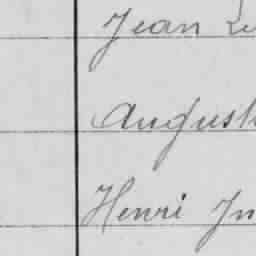 Jean
August
Henri